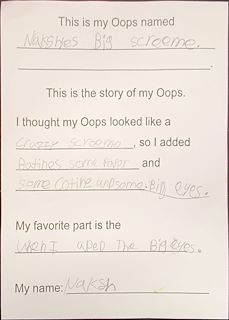 This is my Oops named
Nakshes Big screeme.
This is the story of my Oops.
I thought my Oops looked like a
crazzy screems, so I added
some and
some Big eyes.
My favorite part is the
when I aded The Big eyes.
My name: Naksh